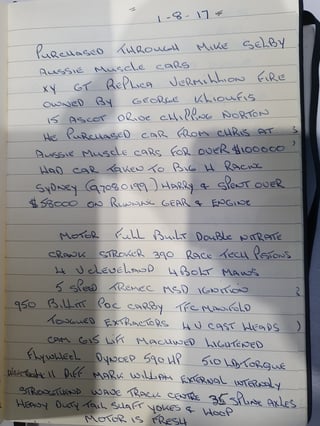 1-8-17
PURCHASED THROUGH MIKE SELBY
AUSSIE MUSCLE CARS
XY GT REPLICA VERMILLION FIRE
OWNED BY GEORGE KLIOUFIS
15 ASCOT DRIVE CHIPPING NORTON
HE PURCHASED CAR FROM CHRIS AT
AUSSIE MUSCLE CARS FOR OVER $100000
HAD CAR TAKEN TO BIG H RACING
SYDNEY (97080199) HARRY & SPENT OVER
$58000 ON RUNNING GEAR & ENGINE
MOTOR FULL BUILT DOUBLE NITRATE
CRANK STROKER 390 RACE TECH PISTONS
4V CLEVELAND 4 BOLT MAINS
5 SPEED TREMEC MSD IGNITION
950 BILLITT CARBY TFC MANIFOLD
TONGUED EXTRACTORS 4V CAST HEADS
CAM 615 LIFT MACHINED LIGHTENED
FLYWHEEL DYNOED 590 HP 510 LB TORQUE
11 DIFF MARK WILLIAM EXTERNAL INTERNALY
WAVE TRACK CENTRE 35 SPLINE AXLES
HEAVY DUTY TAIL SHAFT YOKES & HOOP
MOTOR IS FRESH